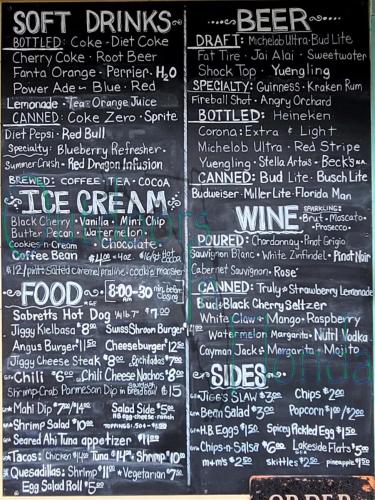 SOFT DRINKS
BOTTLED: Coke · Diet Coke
Cherry Coke · Root Beer
Fanta Orange · Perrier · H2O
Power Ade - Blue · Red
Lemonade · Tea · Orange Juice
CANNED: Coke Zero · Sprite
Diet Pepsi · Red Bull
Specialty: Blueberry Refresher ·
Summer Crush · Red Dragon Infusion
BREWED: COFFEE · TEA · COCOA
ICE CREAM
Black Cherry · Vanilla · Mint Chip
Butter Pecan · Watermelon
Cookies-n-Cream · Chocolate
Coffee Bean
$12/pint: Salted Caramel praline · cookie monster
FOOD
8:00-30 min. before closing
Sabretts Hot Dog 1/4 lb 7" $7.00
Jiggy Kielbasa $8.00 Swiss Shroom Burger
Angus Burger $11.50 Cheeseburger $12.00
Jiggy Cheese Steak $8.00
Chili $6.00 Chili Cheese Nachos $8.00
Shrimp-Crab Parmesan Dip in breadbowl $15
Mahi Dip $7.00/$14.00 Salad Side $5.00
Shrimp Salad $10.00
Seared Ahi Tuna appetizer $11.00
Tacos: Chicken Tuna Shrimp $10.00
Quesadillas: Shrimp $11.00 · Vegetarian $7.00
Egg Salad Roll $5.00
BEER
DRAFT: Michelob Ultra · Bud Lite
Fat Tire · Jai Alai · Sweetwater
Shock Top · Yuengling
SPECIALTY: Guinness · Kraken Rum
Fireball Shot · Angry Orchard
BOTTLED: Heineken
Corona: Extra & Light
Michelob Ultra · Red Stripe
Yuengling · Stella Artois · Beck's N.A.
CANNED: Bud Lite · Busch Lite
Budweiser · Miller Lite · Florida Man
WINE
SPARKLING:
· Brut · Moscato ·
· Prosecco ·
POURED: Chardonnay · Pinot Grigio
Sauvignon Blanc · White Zinfindel · Pinot Noir
Cabernet Sauvignon · Rosé
CANNED: Truly Strawberry Lemonade
Bud Black Cherry Seltzer
White Claw · Mango · Raspberry
Watermelon Margarita · Nutrl Vodka
Cayman Jack · Margarita · Mojito
SIDES
Jigg's SLAW $3.00 Chips $2.00
Bean Salad $3.00 Popcorn $1.00/$2.00
H.B. Eggs $1.50 Spicy Pickled Egg $1.50
Chips-n-Salsa $6.00 Lakeside Flats $5.00
m+m's $2.50 SKittles $2.50 pineapple
ORDER